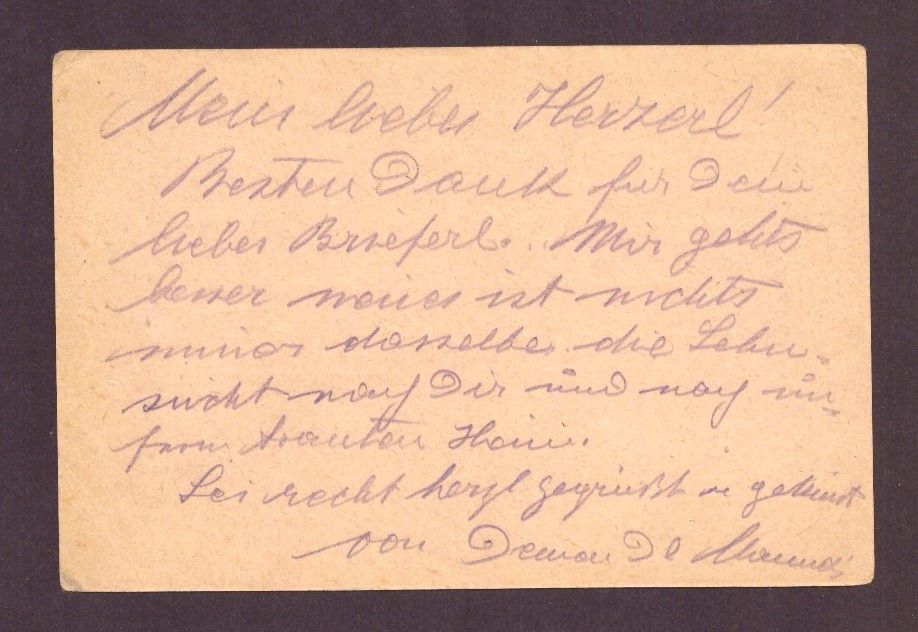 Mein liebes Herzerl!
Besten Dank für Dein
liebes Brieferl. Mir gehts
besser neues ist nichts
immer dasselbe. die Sehn-
sucht nach Dir und nach un-
serm trauten Heim.
Sei recht herzl gegrüßt u geküsst
von Deinem Dl